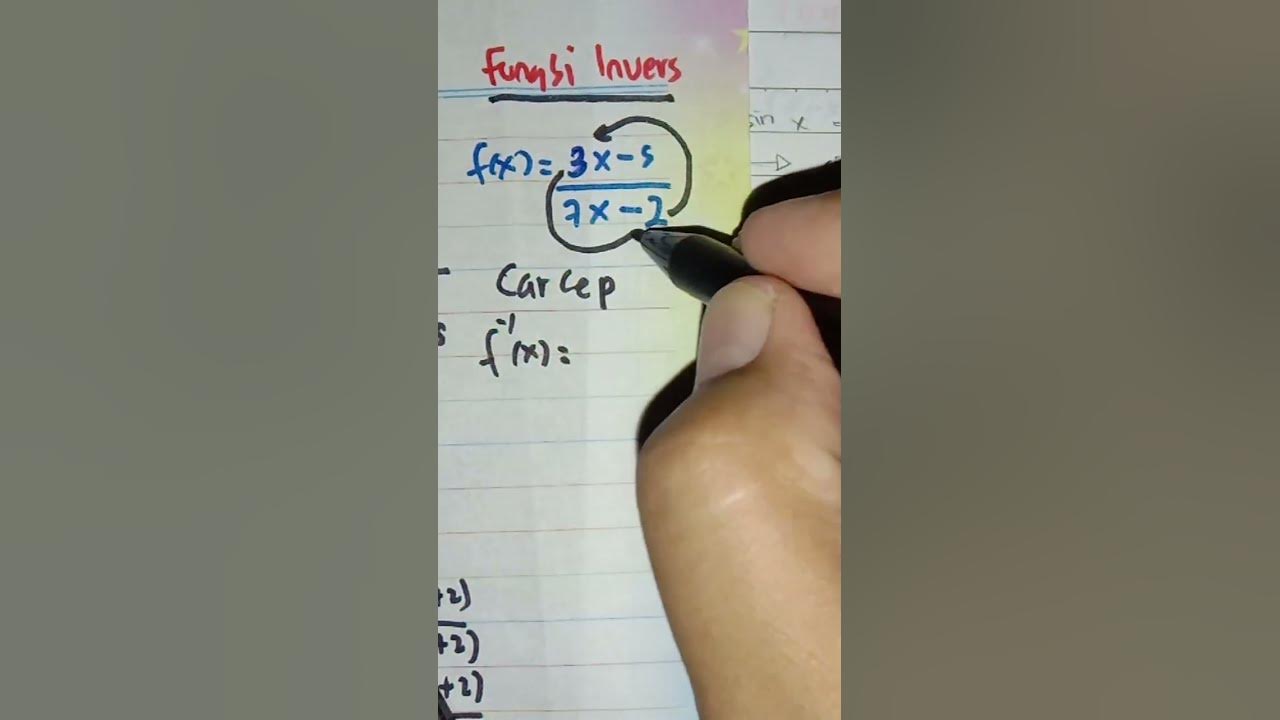 Fungsi Invers
sin x =
f(x) = 3x - 5
7x - 2
Carcep
f⁻¹(x) =
+2)
+2)
+2)